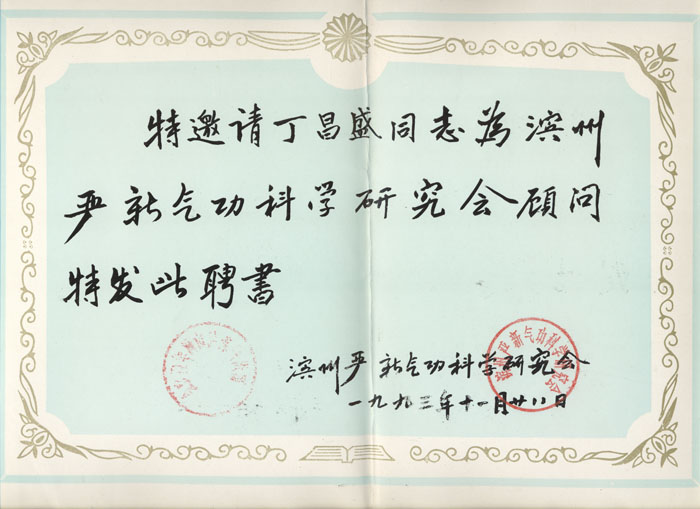 特邀请丁昌盛同志為滨州
严新气功科学研究会顾问
特发此聘书
滨州严新气功科学研究会
一九九三年十一月廿八日